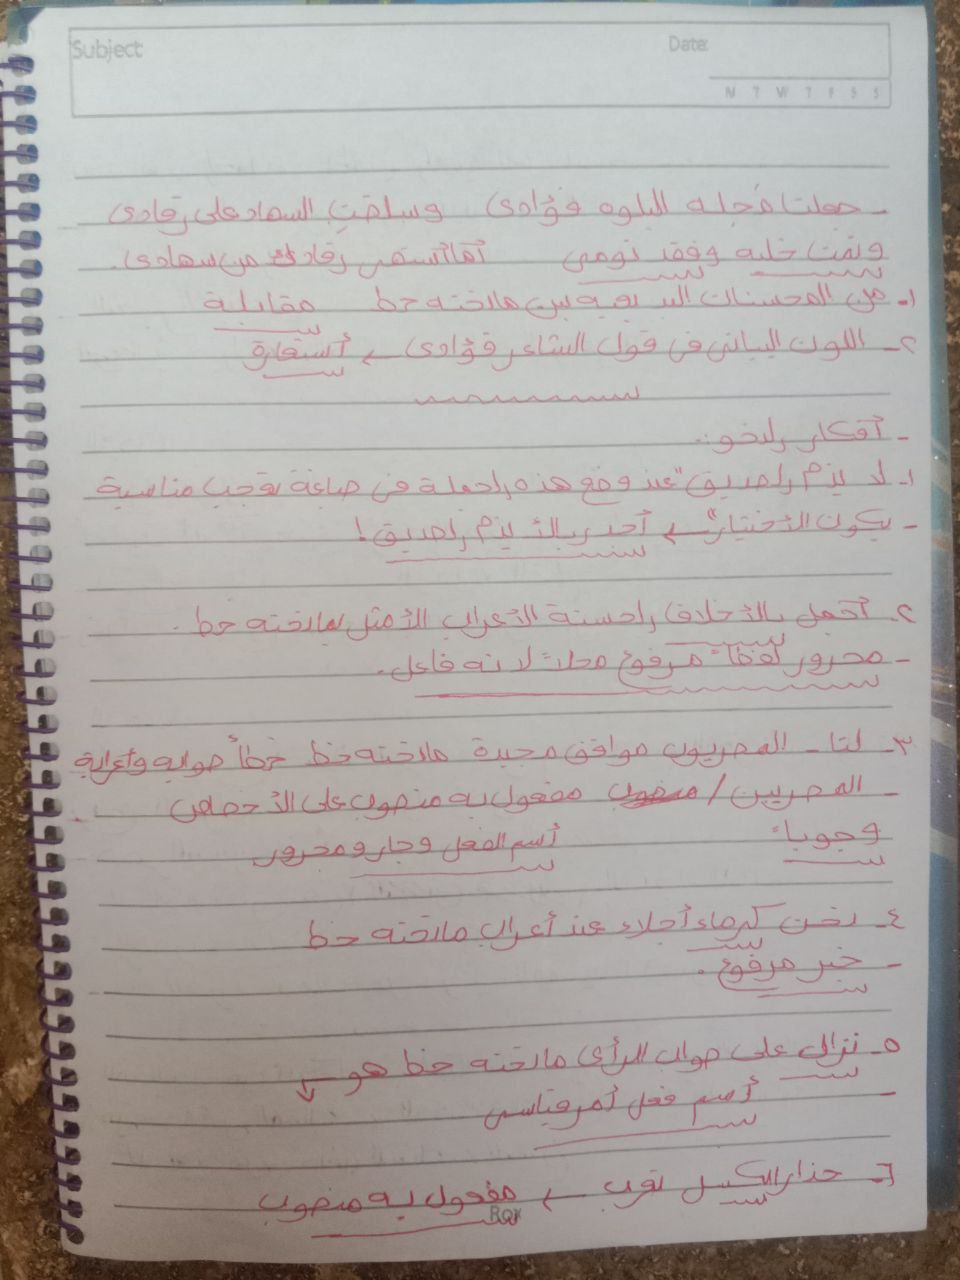 Subject
Date:
M T W T F S S
- جعلت محله البلوه فؤادى وسلطت السهاد على رقادى
ونمت خليه وفقد نومى أما أستحى رقادك من سهادى.
١- من المحسنات البديعيه بين ماتحته خط مقابلة
٢- اللون البيانى فى قول الشاعر فؤادى ← أستعارة
- أفكار النحو:
١- لا يذم الصديق "عند وضع هذه الجملة فى صياغة تعجب مناسبة
- يكون الأختيار" ← أجدر بالا يذم الصديق!
٢- أجمل بالأخلاق الحسنة الأعراب الأمثل لماتحته خط.
- مجرور لفظاً مرفوع محلاً لانه فاعل.
٣- لنا - المصريون مواقف مجيدة ماتحته خط خطأ صوابه وأعرابه
- المصريين / مفعول به منصوب على الأختصاص
وجوباً أسم الفعل وجار ومجرور
٤- نحن كرماء أجلاء عند أعراب ماتحته خط
- خبر مرفوع.
٥- نزال على صواب الرأى ماتحته خط هو
- أسم فعل أمر قياسى
٦- حذار الكسل تعرب ← مفعول به منصوب
Rox